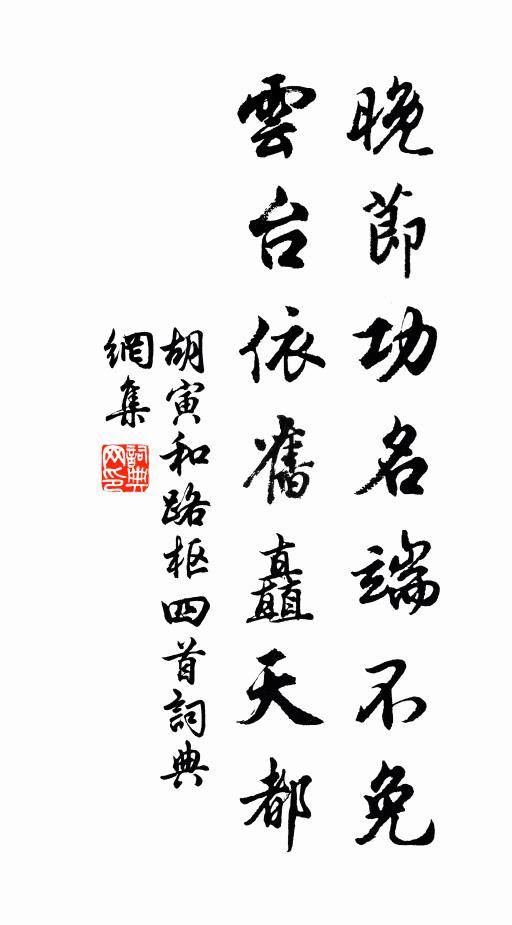 晚節功名端不免
雲台依舊矗天都
胡寅和路樞四首詞典
網集
詞典
網印